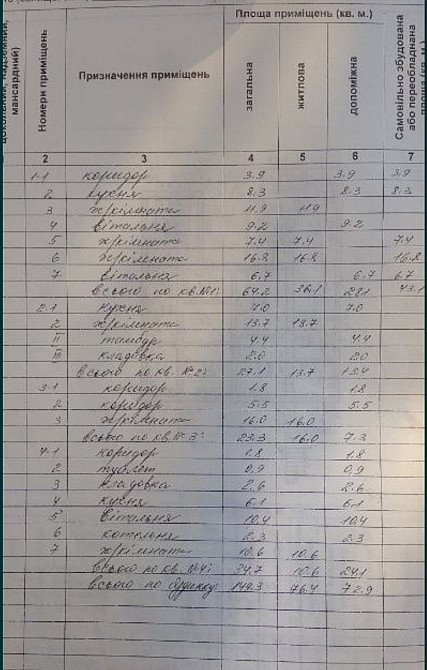 цокольний, надземний, мансардний)
Номери приміщень
Призначення приміщень
Площа приміщень (кв. м.)
загальна
житлова
допоміжна
Самовільно збудована або переобладнана площа (кв. м.)
2 3 4 5 6 7
1-1 коридор 3.9 3.9 3.9
2 кухня 8.3 8.3 8.3
3 ж/кімната 11.9 11.9
4 вітальня 9.2 9.2
5 ж/кімната 7.4 7.4 7.4
6 ж/кімната 16.8 16.8 16.8
7 вітальня 6.7 6.7 6.7
всього по кв.№1: 64.2 36.1 28.1 43.1
2-1 кухня 7.0 7.0
2 ж/кімната 13.7 13.7
II тамбур 4.4 4.4
III кладовка 2.0 2.0
всього по кв. №2: 27.1 13.7 13.4
3-1 коридор 1.8 1.8
2 коридор 5.5 5.5
3 ж/кімната 16.0 16.0
всього по кв.№3: 23.3 16.0 7.3
4-1 коридор 1.8 1.8
2 туалет 0,9 0,9
3 кладовка 2.6 2.6
4 кухня 6.1 6.1
5 вітальня 10.4 10.4
6 котельня 2.3 2.3
7 ж/кімната 10.6 10.6
всього по кв.№4: 34.7 10.6 24.1
всього по будинку: 149.3 76.4 72.9